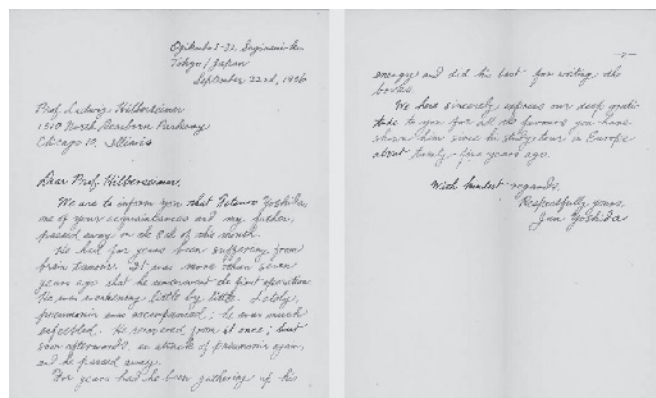 Ogikubo 1-32, Suginami-ku
Tokyo / Japan
September 22nd, 1956
Prof. Ludwig Hilberseimer
1510 North Dearborn Parkway
Chicago 10, Illinois
Dear Prof. Hilberseimer,
We are to inform you that Tetsuro Yoshida,
one of your acquaintances and my father,
passed away on the 8th of this month.
He had for years been suffering from
brain tumour. It was more than seven
years ago that he underwent the first operation.
He was weakening little by little. Lately,
pneumonia was accompanied; he was much
enfeebled. He recovered from it once; but
soon afterwards, an attack of pneumonia again,
and he passed away.
For years had he been gathering up his
-2-
energy and did his best for writing the
books.
We here sincerely express our deep grati-
tude to you for all the favours you have
shown him since his study tour in Europe
about twenty-five years ago.
With kindest regards.
Respectfully yours,
Jun Yoshida